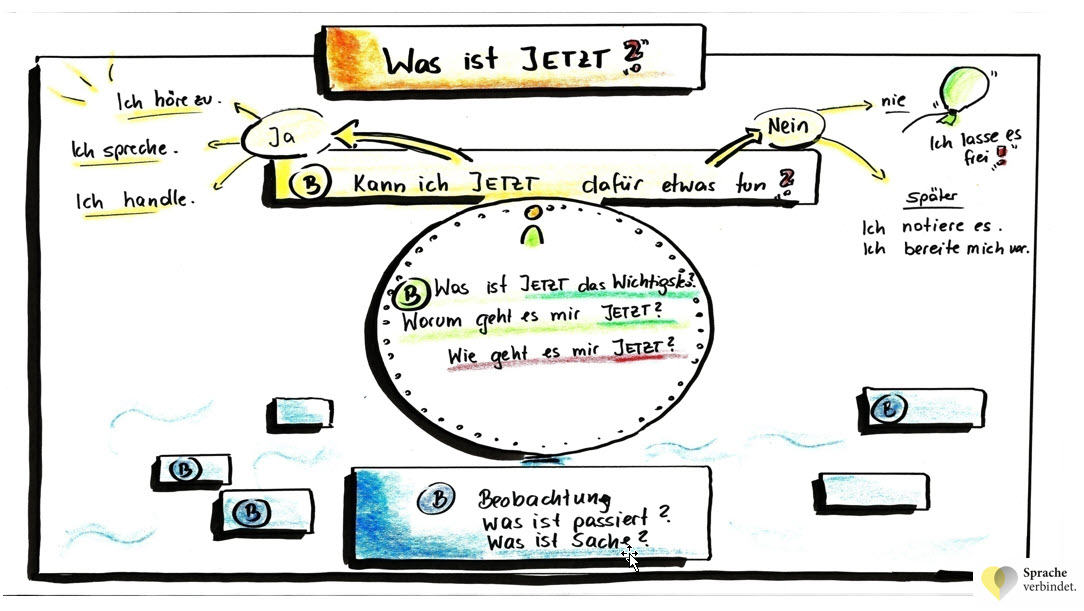 Was ist JETZT ?
Ich höre zu.
Ich spreche.
Ich handle.
Ja
Nein
nie
Ich lasse es
frei !
später
Ich notiere es.
Ich bereite mich vor.
B Kann ich JETZT dafür etwas tun ?
B Was ist JETZT das Wichtigste?
Worum geht es mir JETZT?
Wie geht es mir JETZT?
B
B
B
B Beobachtung
Was ist passiert ?
Was ist Sache ?
Sprache
verbindet.